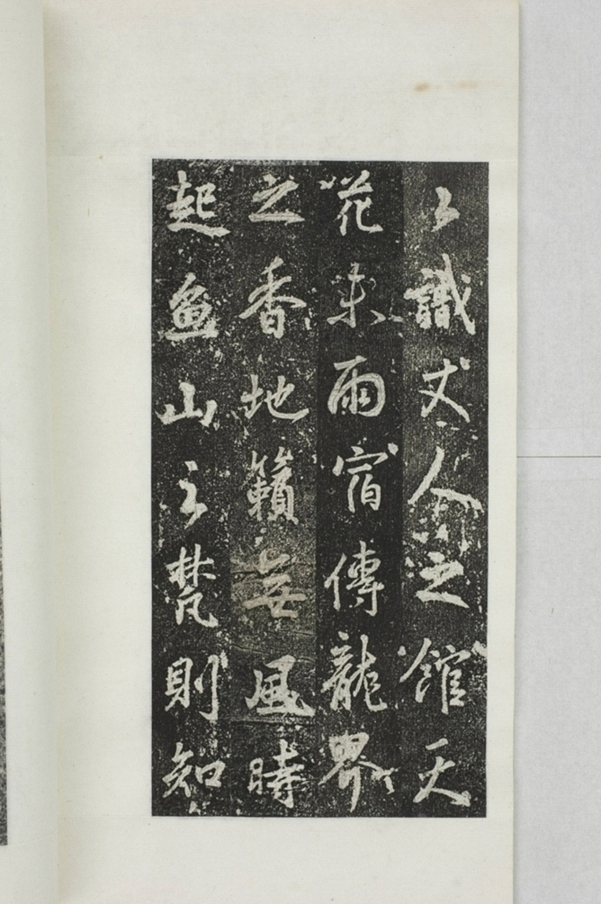 識丈人之館天
花未雨宿傳龍界
之香地籟無風時
起魚山之梵則知